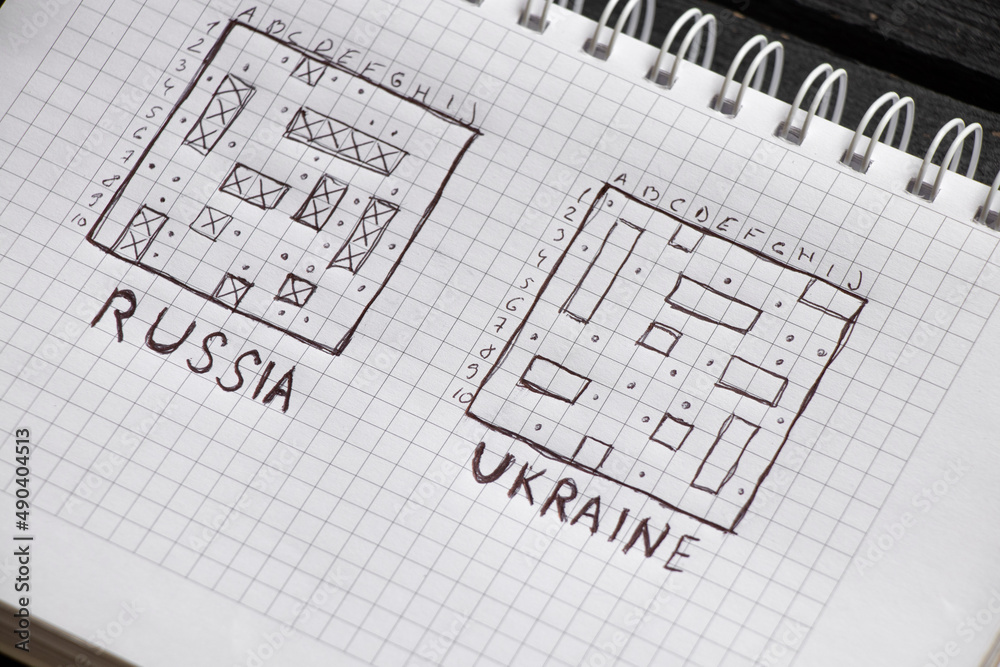 A B C D E F G H I J
1
2
3
4
5
6
7
8
9
10
RUSSIA
A B C D E F G H I J
1
2
3
4
5
6
7
8
9
10
UKRAINE
Adobe Stock | #490404513